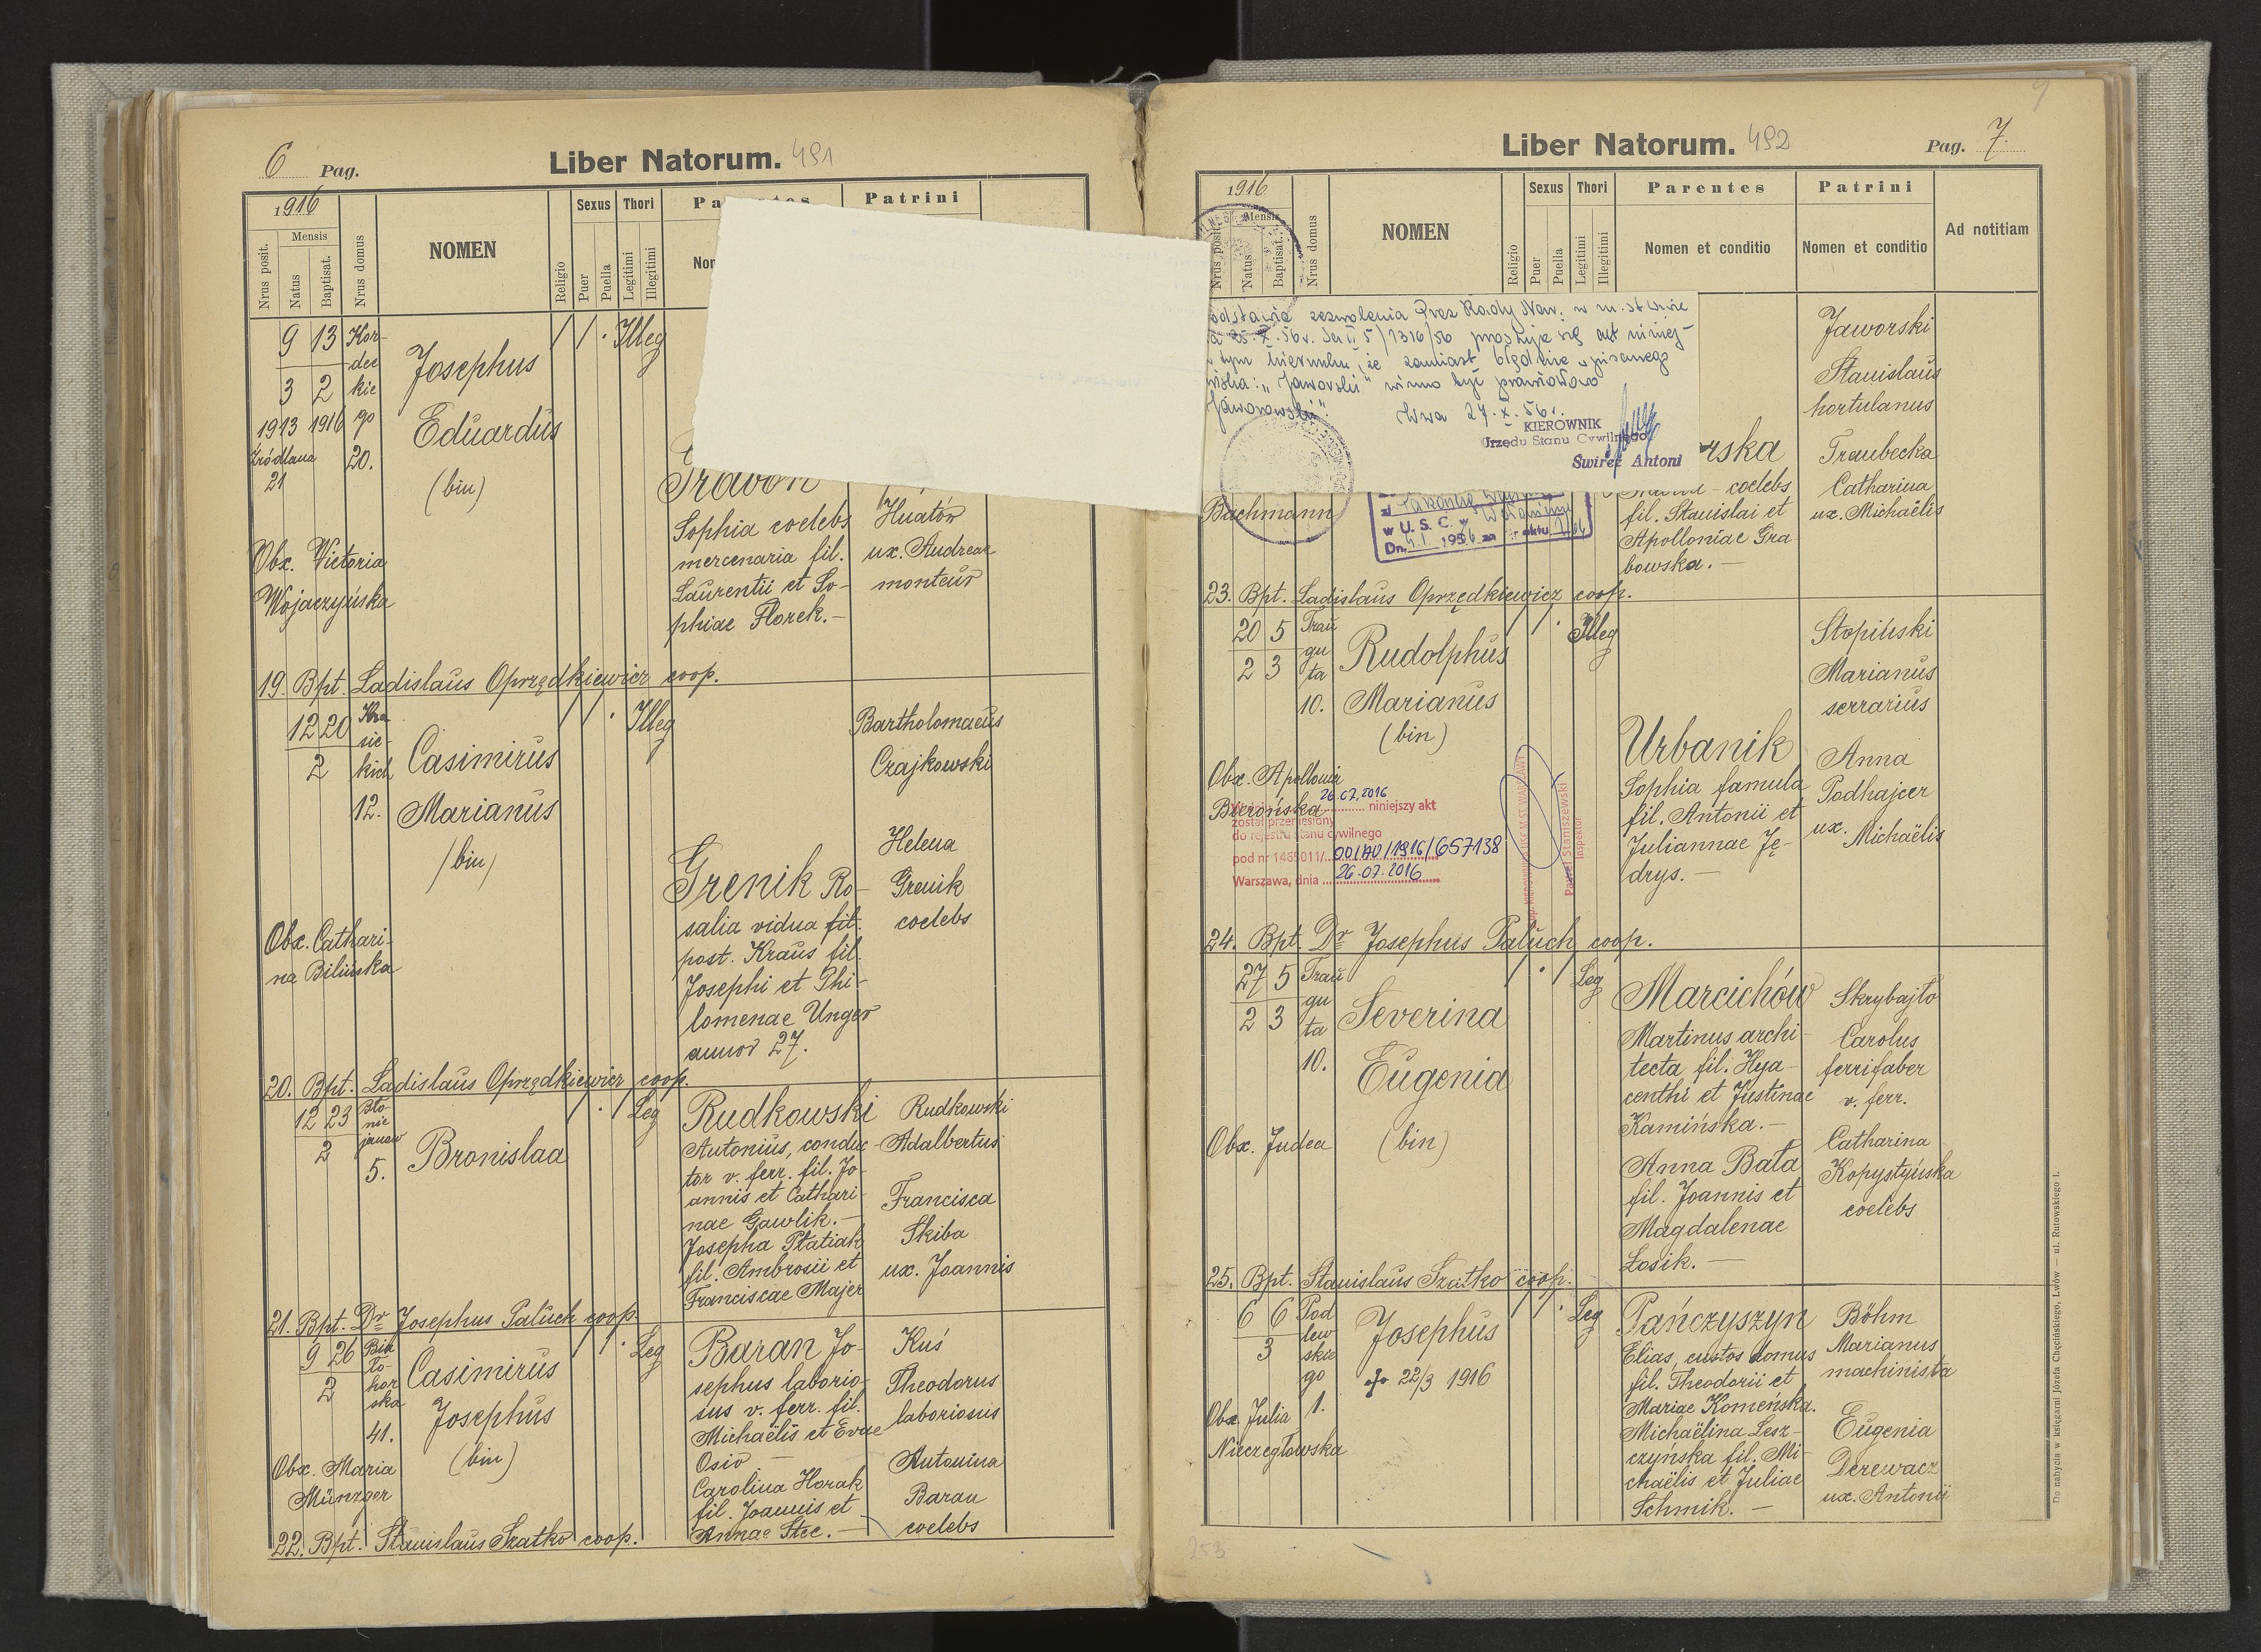 6 Pag.
Liber Natorum. 491
1916
Mensis
Nrus posit.
Natus
Baptisat.
Nrus domus
NOMEN
Religio
Sexus
Puer
Puella
Thori
Legitimi
Illegitimi
Patrini
9 13 Kor-
dec
3 2 kie
1913 1916 go
Źródlana 20.
21
Josephus
Eduardus
(bin)
Illeg
Obx. Victoria
Wojaczyńska
Sophia coelebs
mercenaria fil.
Laurentii et So-
phiae Florek.-
Huatów
ux. Andreae
monteur
19. Bpt. Ladislaus Oprzędkiewicz coop.
12 20 Kra
sic-
2 kich
12.
Casimirus
Marianus
(bin)
Illeg
Obx. Cathari-
na Bilińska
Grenik Ro-
salia vidua fil.
post. Kraus fil.
Josephi et Phi-
lomenae Unger
annor 27.
Bartholomaeus
Czajkowski
Helena
Grenik
coelebs
20. Bpt. Ladislaus Oprzędkiewicz coop.
12 23 Bło-
nie
2 janow
5.
Bronislaa
Leg
Rudkowski
Antonius, conduc-
tor v. ferr. fil. Jo-
annis et Cathari-
nae Gawlik.-
Josepha Płatiak
fil. Ambrosii et
Franciscae Majer
Rudkowski
Adalbertus
Francisca
Skiba
ux. Joannis
21. Bpt. Dr Josephus Paluch coop.
9 26 Bia
ło-
2 hor
ska
41.
Casimirus
Josephus
(bin)
Leg
Obx. Maria
Münzger
Baran Jo-
sephus laborio-
sus v. ferr. fil.
Michaëlis et Evae
Osio -
Carolina Horak
fil. Joannis et
Annae Stec.-
Kuś
Theodorus
laboriosus
Antonina
Baran
coelebs
22. Bpt. Stanislaus Szatko coop.
Liber Natorum. 492
Pag. 7.
1916
Mensis
Nrus posit.
Natus
Baptisat.
Nrus domus
NOMEN
Religio
Sexus
Puer
Puella
Thori
Legitimi
Illegitimi
Parentes
Nomen et conditio
Patrini
Nomen et conditio
Ad notitiam
zezwolenia Prez Rady Nar. w m. st. W-wie
25.X.56r.
zamiast błędnie wpisanego
"Jaworski" winno być prawidłowo
"Jaworowski".
W-wa 27.X.56r.
KIEROWNIK
Urzędu Stanu Cywilnego
Swireć Antoni
Bachmann
w U. S. C. w
Dn. 4.I. 1956 za nr aktu
rska
coelebs
fil. Stanislai et
Apolloniae Gra-
bowska.-
Jaworski
Stanislaus
hortulanus
Traubecka
Catharina
ux. Michaëlis
23. Bpt. Ladislaus Oprzędkiewicz coop.
20 5 Trau
gu
2 3 ta
10.
Rudolphus
Marianus
(bin)
Illeg
Obx. Apollonia
Bierońska
26.07.2016 niniejszy akt
został przeniesiony
do rejestru stanu cywilnego
pod nr 1465011/00/AU/1916/657138
Warszawa, dnia 26.07.2016
Paweł Staniszewski
Inspektor
Urbanik
Sophia famula
fil. Antonii et
Juliannae Ję-
drys.-
Stopiński
Marianus
serrarius
Anna
Podhajcer
ux. Michaëlis
24. Bpt. Dr Josephus Paluch coop.
27 5 Trau
gu
2 3 ta
10.
Severina
Eugenia
(bin)
Leg
Obx. Judea
Marcichów
Martinus archi-
tecta fil. Hya-
centhi et Justinae
Kamińska.-
Anna Bała
fil. Joannis et
Magdalenae
Łosik.-
Skrybajło
Carolus
ferrifaber
v. ferr.
Catharina
Kopystyńska
coelebs
25. Bpt. Stanislaus Szatko coop.
6 6 Pod
lew
3 skie
go
1.
Josephus
22/3 1916
Leg
Obx. Julia
Niezegłowska
Pańczyszyn
Elias, custos domus
fil. Theodorii et
Mariae Komeńska.
Michaëlina Lesz-
czyńska fil. Mi-
chaëlis et Juliae
Schmik.-
Böhm
Marianus
machinista
Eugenia
Derewacz
ux. Antonii
Do nabycia w księgarni Józefa Chęcińskiego, Lwów — ul. Rutowskiego 1.
253